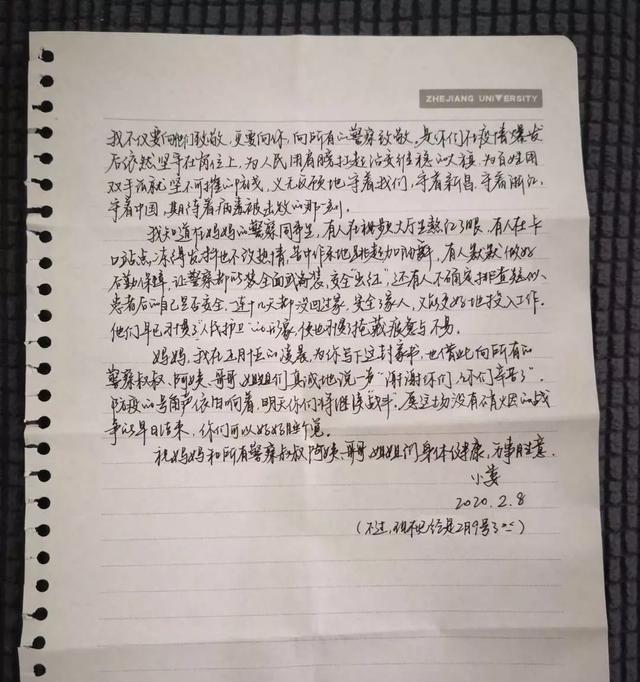 ZHEJIANG UNIVERSITY
我不仅要向他们致敬,更要向你,向所有的警察致敬。是你们在疫情爆发
后依然坚守在岗位上,为人民团着膀扛起治安维稳的大旗,为百姓用
双手筑就坚不可摧的防线,义无反顾地守着我们,守着新昌,守着浙江,
守着中国,期待着病毒被击败的那一刻。
我知道在妈妈的警察同事里,有人在视频大厅里熬红了眼,有人在卡
口站点冻得发抖也不改热情,苦中作乐地跳起加油舞,有人默默做好
后勤保障,让警察都以装全面武装,安全“出征”,还有人不确定排查疑似
患者后的自己是否安全,连十几天都没回过家,安全了家人,又能更好地投入工作。
他们早已习惯了“人民护卫”的形象,使也习惯掩藏疲惫与不易。
妈妈,我在正月十五的凌晨为你写下这封家书,也借此向所有的
警察叔叔、阿姨、哥哥、姐姐们真诚地说一声“谢谢你们,你们辛苦了”。
防疫的号角声依旧响着,明天你们将继续“战斗”。愿这场没有硝烟的战
争的早日结束,你们可以好好睡个觉。
祝妈妈和所有警察叔叔、阿姨、哥哥、姐姐们身体健康,万事胜意。
小娄
2020.2.8
(不过,现在已经是2月9号了